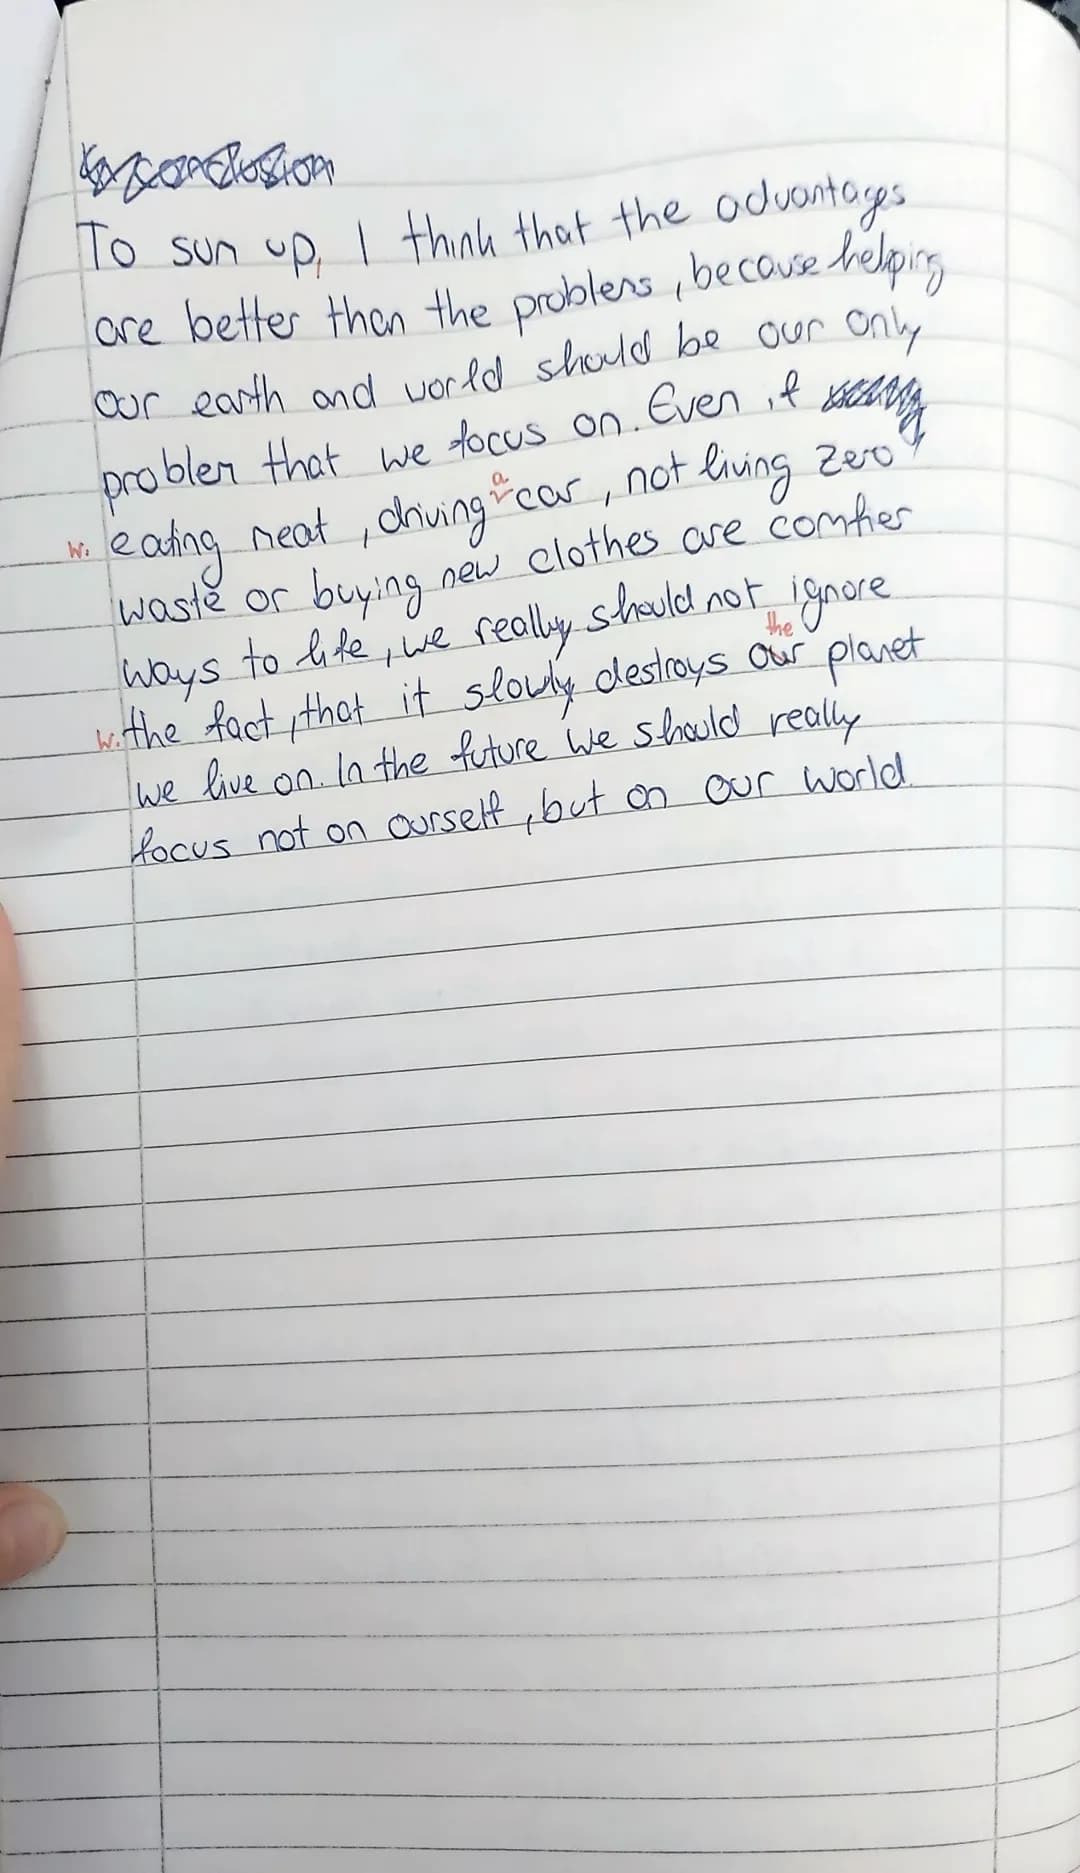 To sum up, I think that the advantages
are better than the problems, because helping
our earth and world should be our only
problem that we focus on. Even if
w. eating meat, driving a car, not living zero
waste or buying new clothes are comfier
ways to life, we really should not ignore
the
w. the fact, that it slowly destroys our planet
we live on. In the future we should really
focus not on ourself, but on our world.